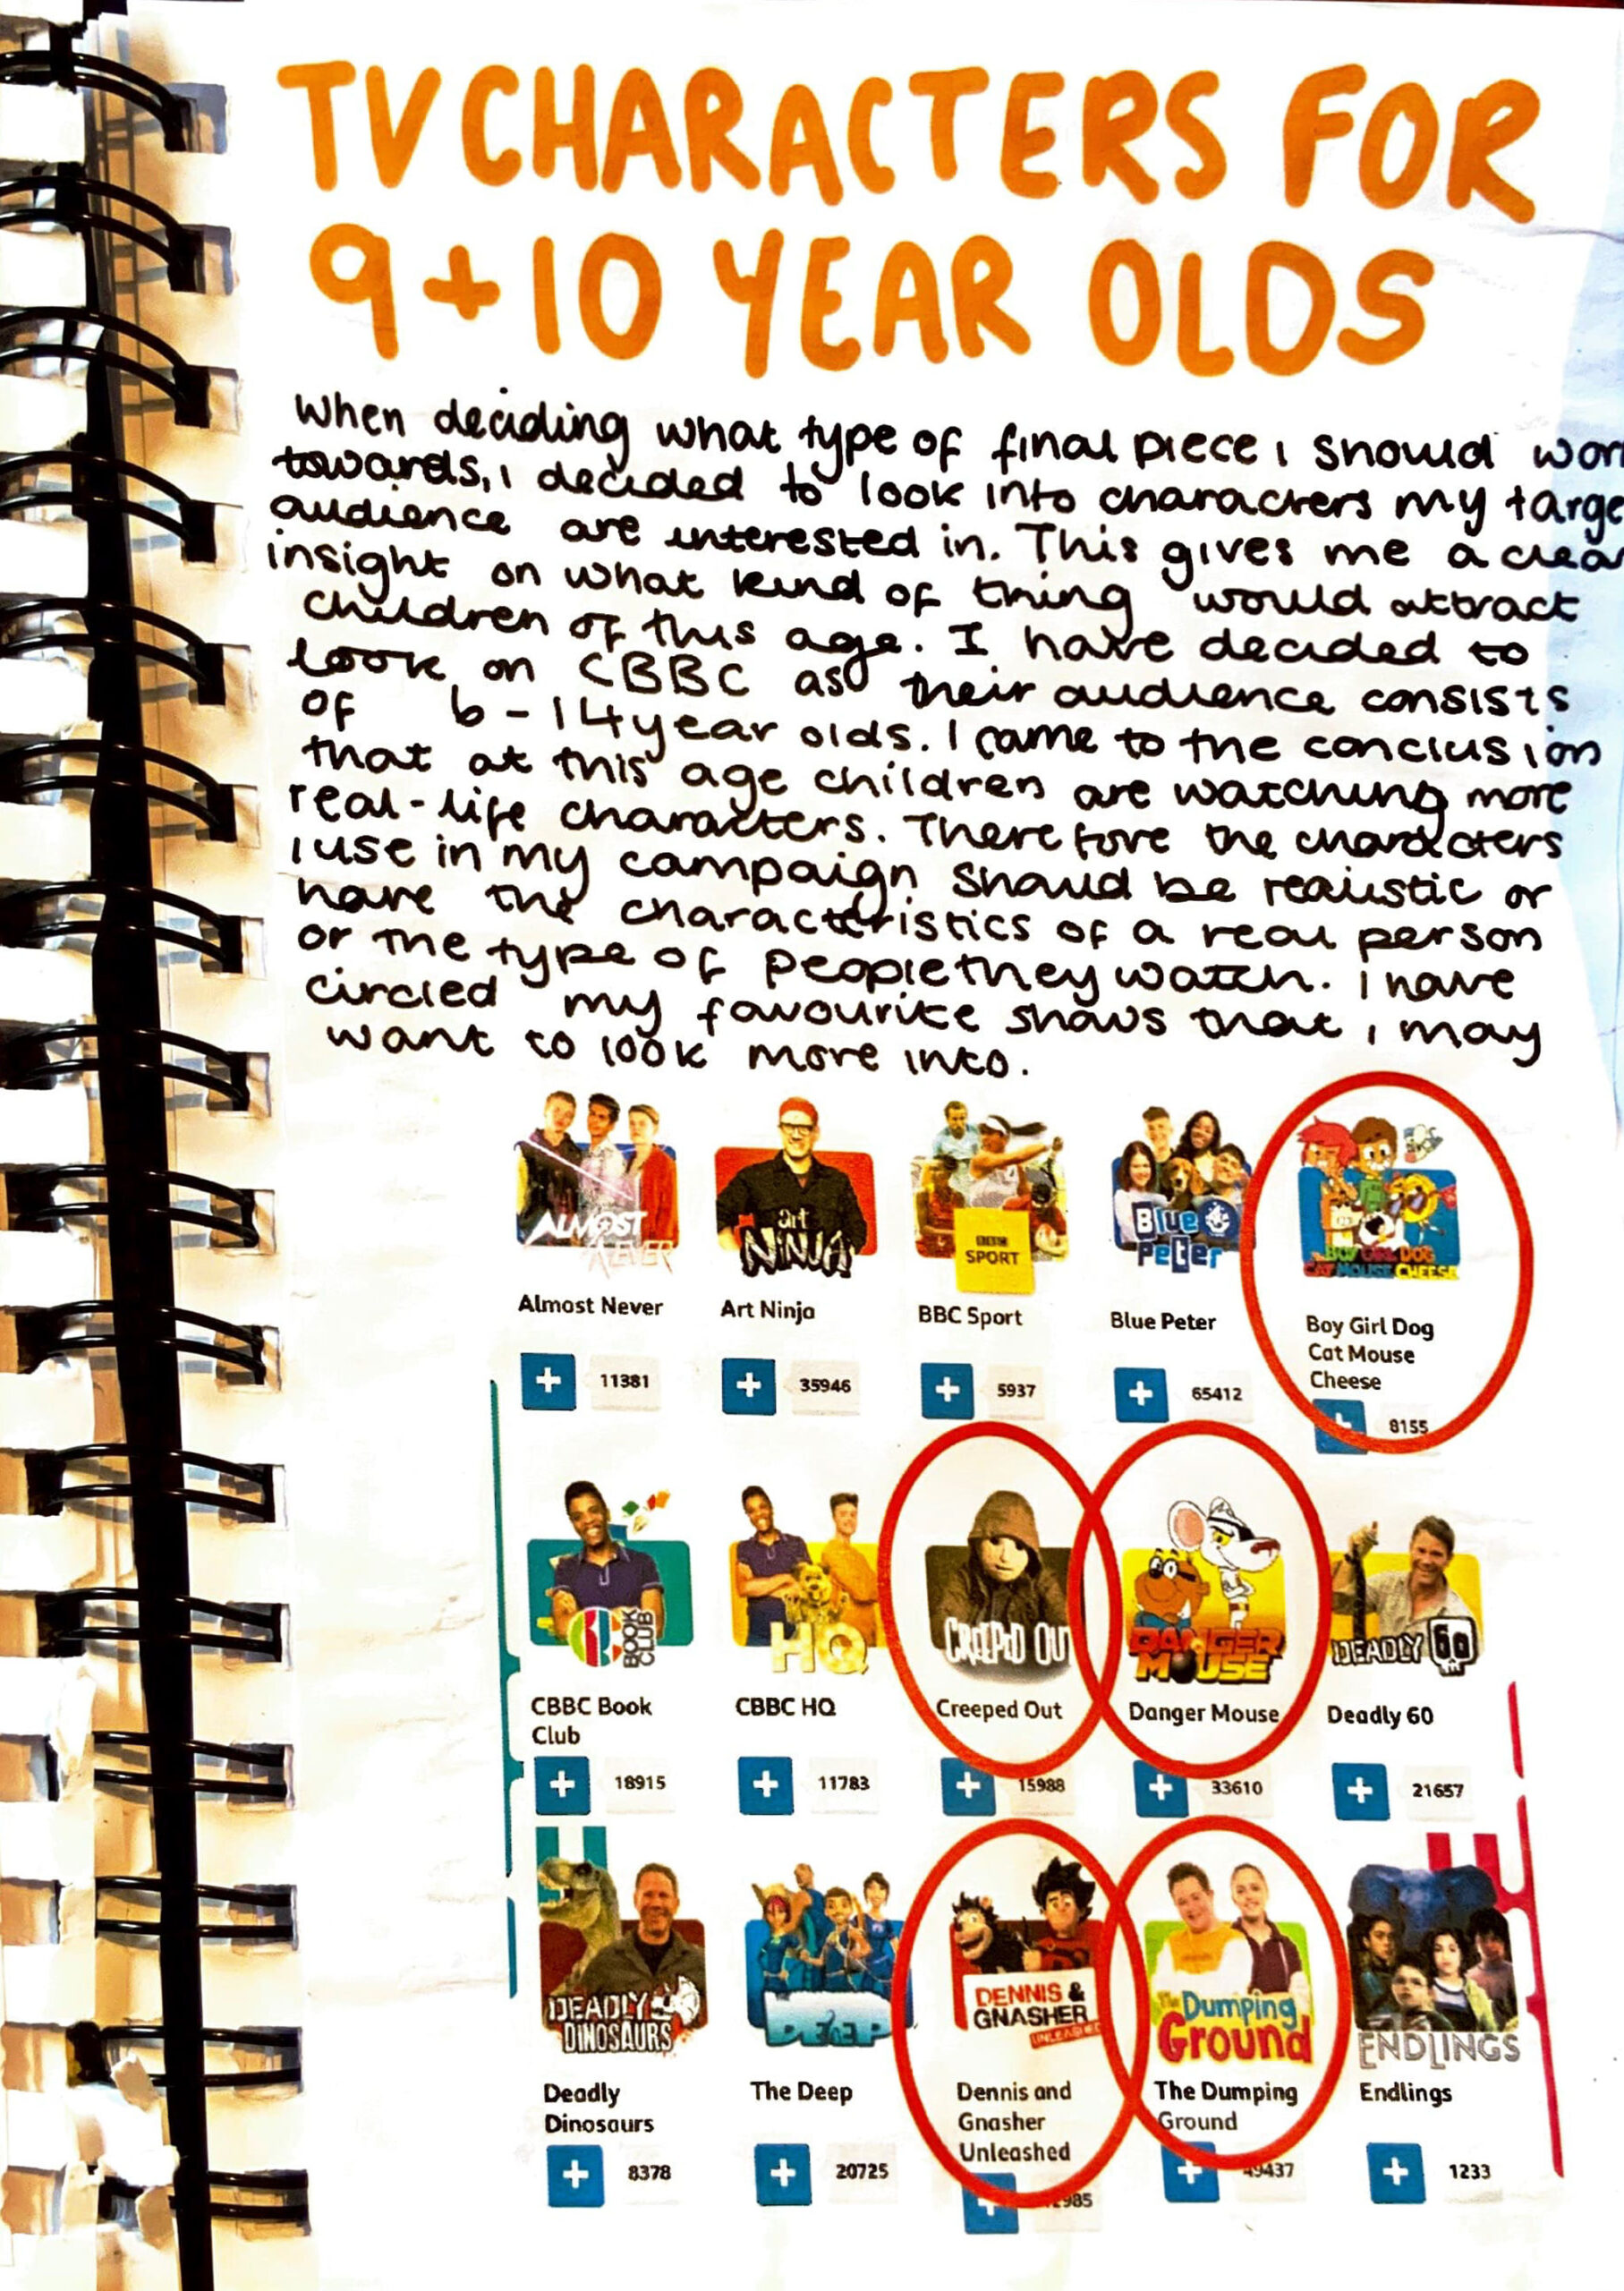 TV CHARACTERS FOR
9+10 YEAR OLDS
When deciding what type of final piece I should wor
towards, I decided to look into characters my targe
audience are interested in. This gives me a clea
insight on what kind of thing would attract
children of this age. I have decided to
look on CBBC as their audience consists
of 6-14 year olds. I came to the conclusion
that at this age children are watching more
real-life characters. Therefore the characters
I use in my campaign should be realistic or
have the characteristics of a real person
or the type of people they watch. I have
circled my favourite shows that I may
want to look more into.
ALMOST NEVER
art NINJA
BBC SPORT
Blue Peter
BOY GIRL DOG CAT MOUSE CHEESE
Almost Never
Art Ninja
BBC Sport
Blue Peter
Boy Girl Dog
Cat Mouse
Cheese
11381
35946
5937
65412
8155
BOOK CLUB
HQ
CREEPED OUT
DANGER MOUSE
DEADLY 60
CBBC Book
Club
CBBC HQ
Creeped Out
Danger Mouse
Deadly 60
18915
11783
15988
33610
21657
DEADLY DINOSAURS
DEEP
DENNIS & GNASHER UNLEASHED
The Dumping Ground
ENDLINGS
Deadly
Dinosaurs
The Deep
Dennis and
Gnasher
Unleashed
The Dumping
Ground
Endlings
8378
20725
985
49437
1233